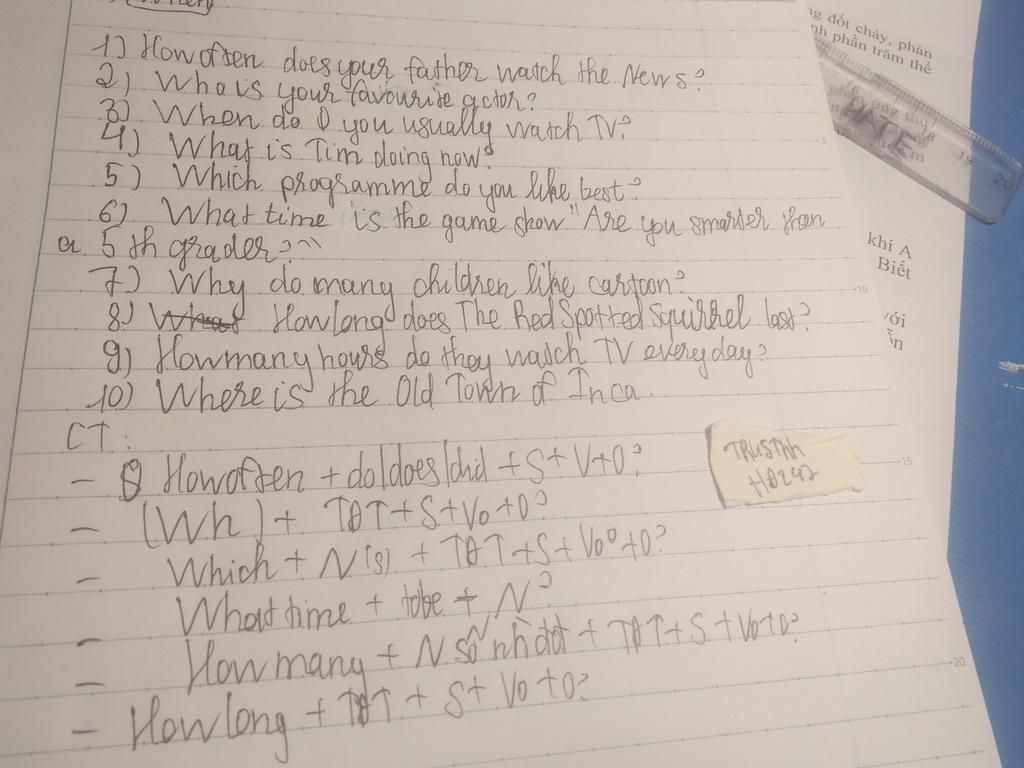 1) How often does your father watch the News?
2) Who is your favourite actor?
3) When do you usually watch TV?
4) What is Tim doing now?
5) Which programme do you like best?
6) What time is the game show "Are you smarter than
a 5th grader?"
7) Why do many children like cartoon?
8) What How long does The Red Spotted Squirrel last?
9) How many hours do they watch TV every day?
10) Where is the Old Town of Inca
CT:
- How often + do/does/did + S + V + O?
- (Wh) + TĐT + S + Vo + O?
- Which + N(s) + TĐT + S + Vo + O?
What time + tobe + N?
- How many + N số nhiều + TĐT + S + Vo + O?
- How long + TĐT + S + Vo + O?
TRUSTAH
HĐ242
ng đốt cháy, phản
nh phần trăm thể
DATE
18
19
20
khí A
Biết
với
5
10
15
20